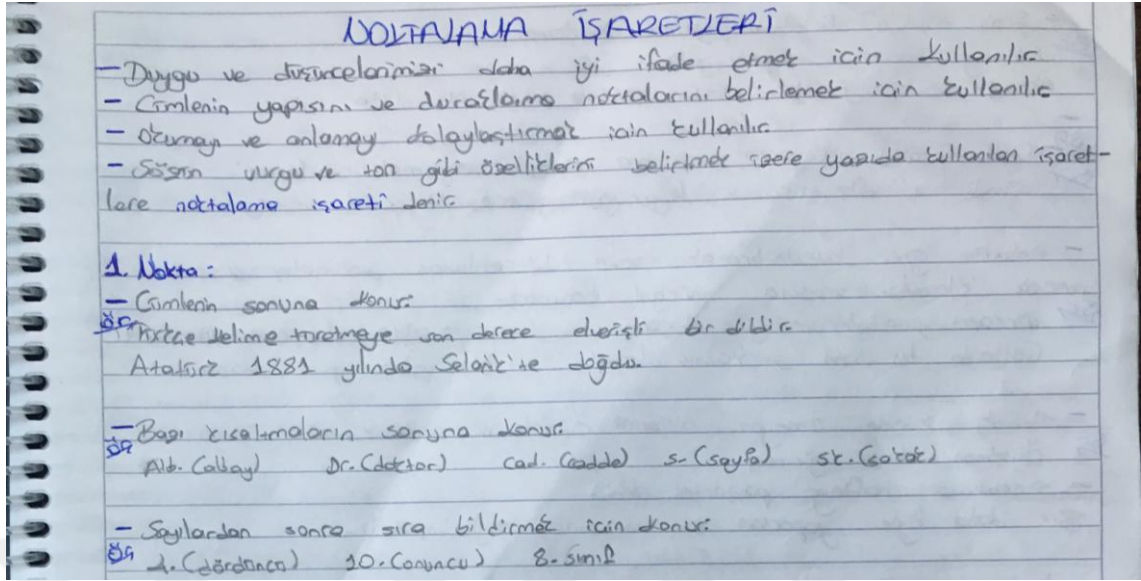 NOKTALAMA İŞARETLERİ
- Duygu ve düşüncelerimizi daha iyi ifade etmek için kullanılır.
- Cümlenin yapısını ve duraklama noktalarını belirlemek için kullanılır
- Okumayı ve anlamayı kolaylaştırmak için kullanılır.
- Sözün vurgu ve ton gibi özelliklerini belirtmek üzere yazıda kullanılan işaret-
lere noktalama işareti denir.
1. Nokta:
- Cümlenin sonuna konur:
ÖR Türkçe kelime türetmeye son derece elverişli bir dildir.
Atatürk 1881 yılında Selanik'te doğdu.
- Bazı kısaltmaların sonuna konur:
ÖR
Alb. (albay) Dr. (doktor) cad. (cadde) s. (sayfa) sk. (sokak)
- Sayılardan sonra sıra bildirmek için konur:
ÖR 4. (dördüncü) 10. (onuncu) 8. sınıf